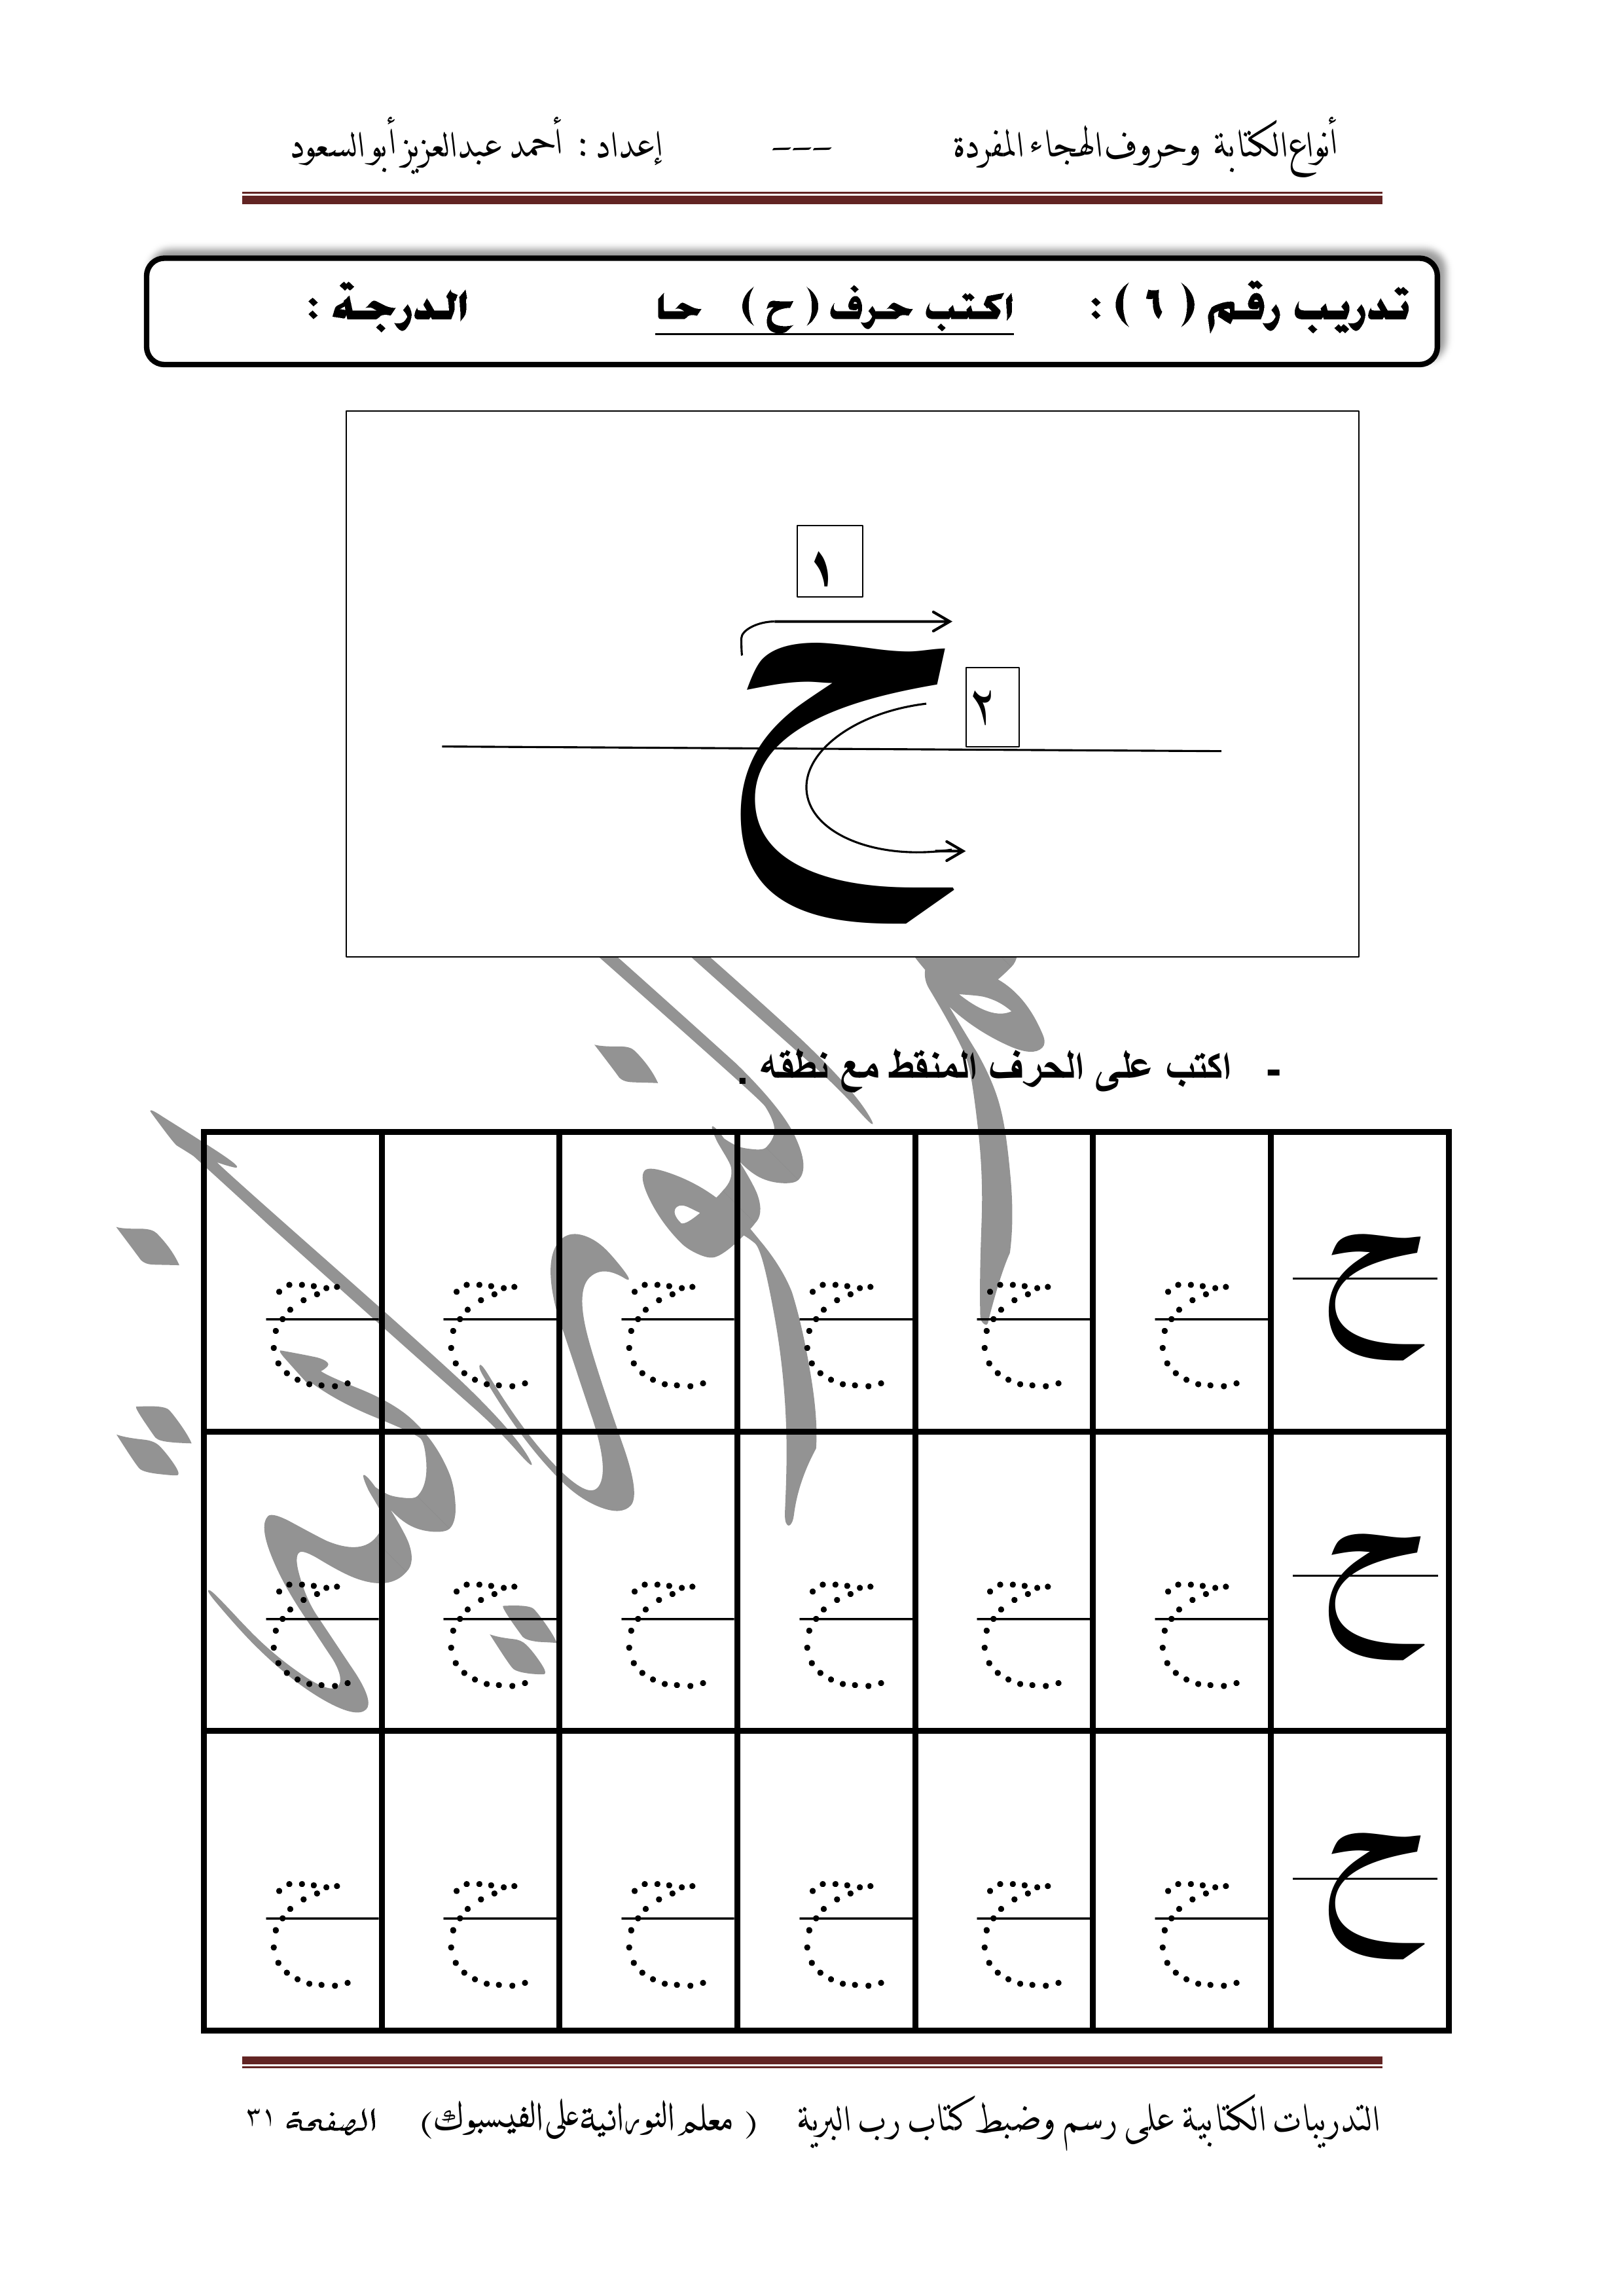 أنواع الكتابة وحروف الهجاء المفردة --- إعداد : أحمد عبدالعزيز أبو السعود
تدريب رقم ( ٦ ) : اكتب حرف ( ح ) حا الدرجة :
١
ح
٢
- اكتب على الحرف المنقط مع نطقه .
ح ح ح ح ح ح ح
ح ح ح ح ح ح ح
ح ح ح ح ح ح ح
التدريبات الكتابية على رسم وضبط كتاب رب البرية ( معلم النورانية على الفيسبوك) الصفحة ٣١